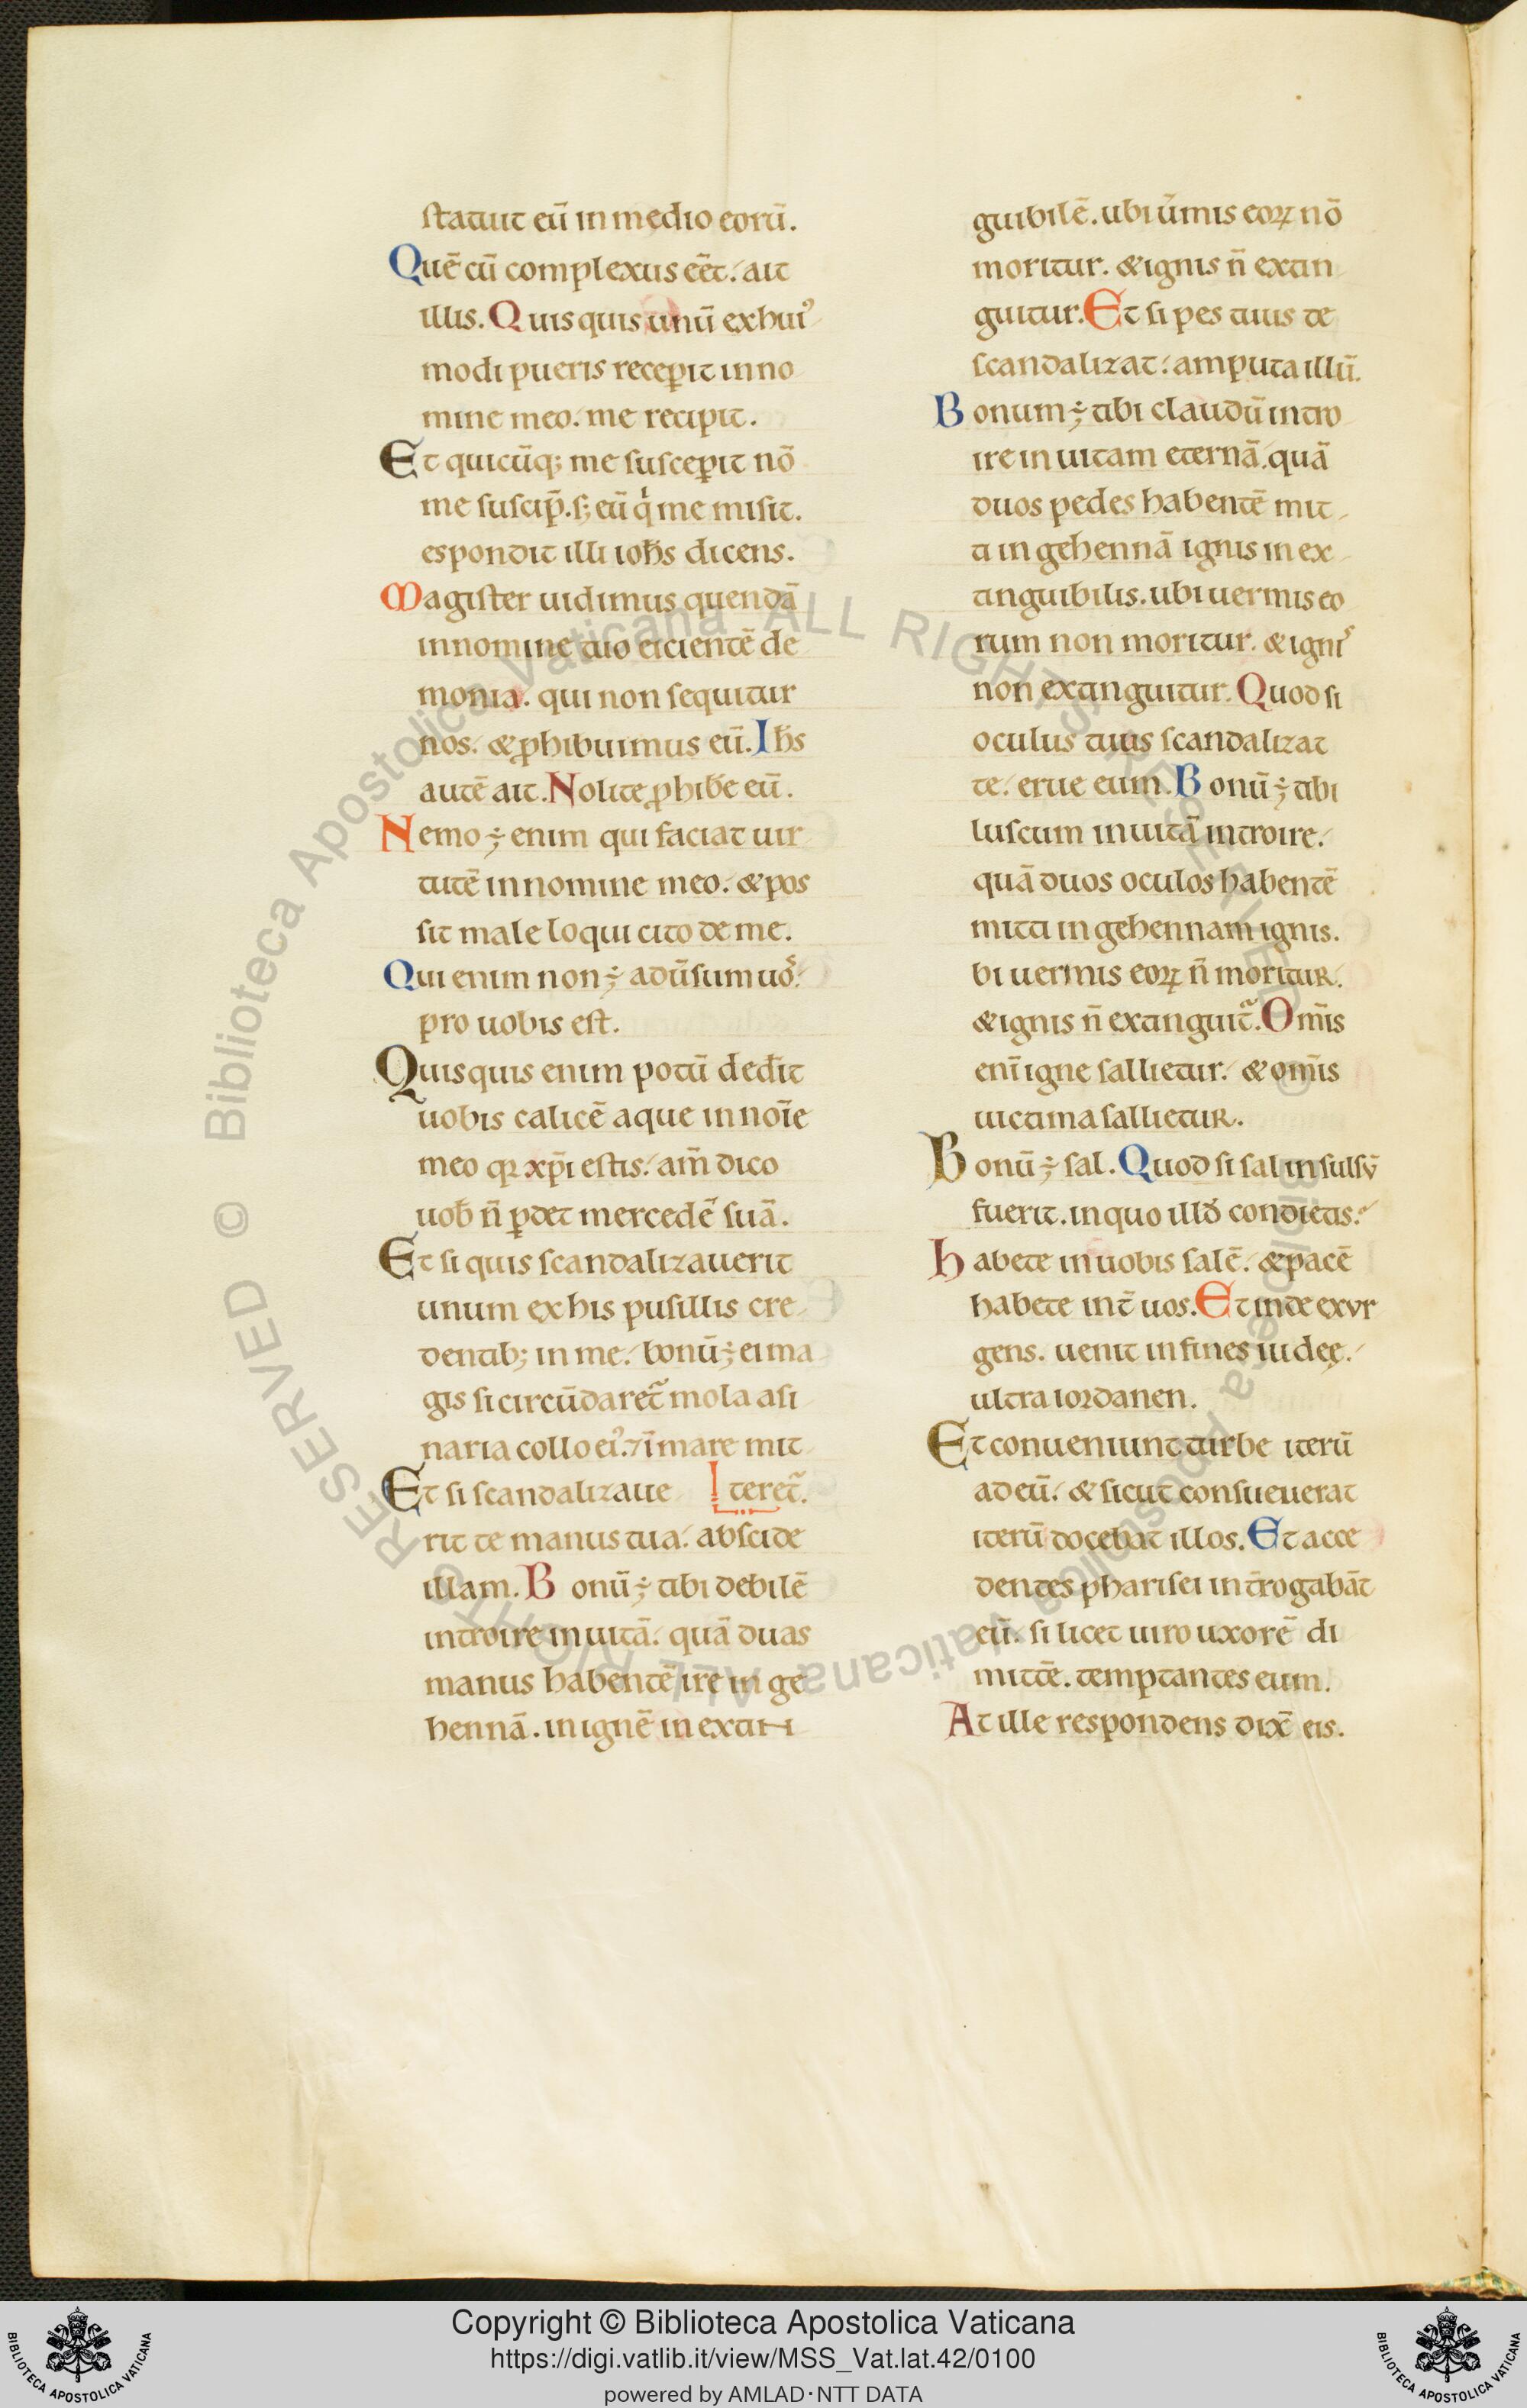 statuit eū in medio eorū.
Quē cū complexus eēt. ait
illis. Quisquis unū ex hui᾽
modi pueris recep̱it in no
mine meo. me recipit.
Et quicūq; me suscep̱it nō
me suscip̄. s; eū qͥ me misit.
espondit illi ioħs dicens.
Magister uidimus quendā
in nomine tuo eicientē de
monia. qui non sequitur
nos. & ꝓhibuimus eū. Iħs
autē ait. Nolite ꝓhibe̅ eū.
Nemo ÷ enim qui faciat uir
tutē in nomine meo. & pos
sit male loqui cito de me.
Qui enim non ÷ adūsum uoˢ.
pro uobis est.
Quisquis enim potū dedit̄
uobis calicē aque in noīe
meo qꝛ xp̄i estis. am̄ dico
uob̄ n̄ ꝑdet mercedē suā.
Et si quis scandalizauerit
unum ex his pusillis cre
dentib; in me. bonū ÷ ei ma
gis si circūdaret᷑ mola asi
naria collo ei᾽. ⁊ ī mare mit
Et si scandalizaue teret᷑.
rit te manus tua. abscide
illam. Bonū ÷ tibi debilē
introire in uitā. quā duas
manus habentē ire in ge
hennā. in ignē inextin
guibilē. ubi ūmis eoꝝ nō
moritur. & ignis n̄ extin
guitur. Et si pes tuus te
scandalizat. amputa illū.
Bonum ÷ tibi claudū intro
ire in uitam eternā. quā
duos pedes habentē mit
ti in gehennā ignis inex
tinguibilis. ubi uermis eo
rum non moritur. & igniˢ
non extinguitur. Quod si
oculus tuus scandalizat
te. erue eum. Bonū ÷ tibi
luscum in uitā introire.
quā duos oculos habentē
mitti in gehennam ignis.
bi uermis eoꝝ n̄ moritur.
& ignis n̄ extinguit᷑. Om̄is
enī igne sallietur. & om̄is
uictima sallietur.
Bonū ÷ sal. Quod si sal insulsū
fuerit. in quo illđ condietis.
Habete in uobis salē. & pacē
habete int̄ uos. Et inde exur
gens. uenit in fines iudeę.
ultra iordanen.
Et conueniunt turbe iterū
ad eū. & sicut consueuerat
iterū docebat illos. Et acce
dentes pharisei int̄rogabāt
eū. si licet uiro uxorē di
mittē. temptantes eum.
At ille respondens dix̄ eis.
Copyright © Biblioteca Apostolica Vaticana
https://digi.vatlib.it/view/MSS_Vat.lat.42/0100
powered by AMLAD·NTT DATA